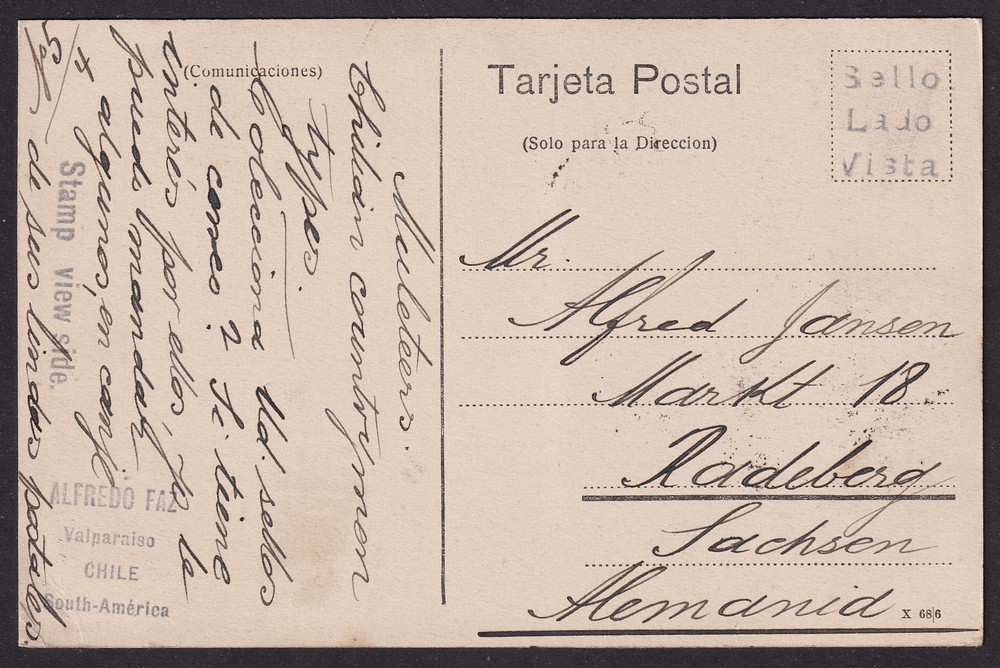 (Comunicaciones)
Muleteers.
Chilian countrymen
types.
Colecciona Ud. sellos
de correo? Si tiene
interés por ellos, yo le
puedo mandar
algunos, en camb
de sus lindas postales.
Stamp view side.
ALFREDO FAZ
Valparaiso
CHILE
South-América
Tarjeta Postal
(Solo para la Direccion)
Sello
Lado
Vista
Mr.
Alfred Jansen
Markt 18.
Radeberg
Sachsen
Alemania
X 68|6